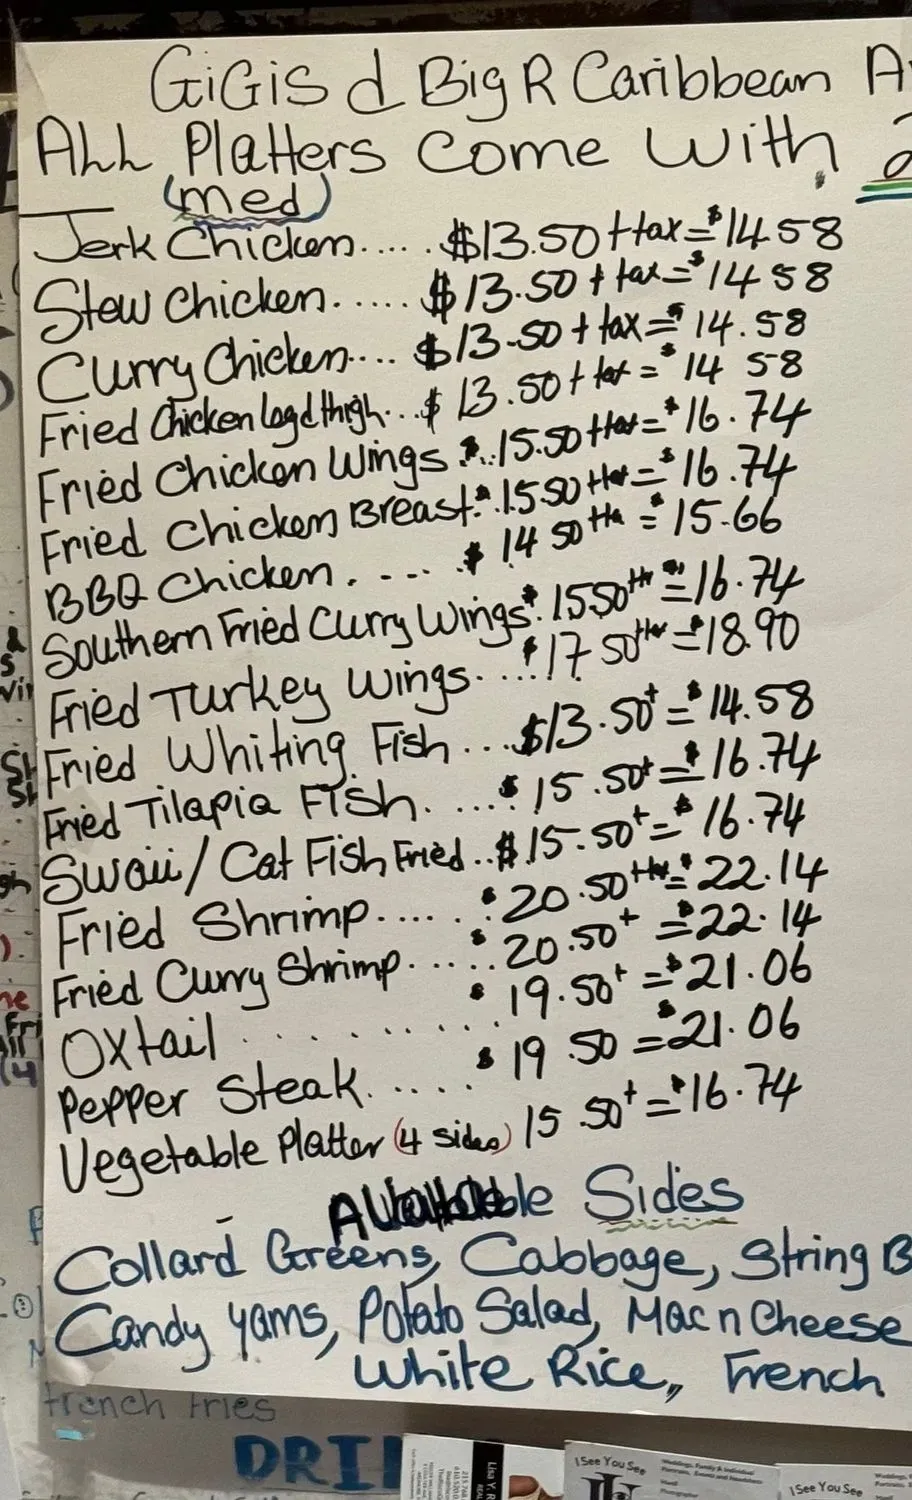 GiGis d Big R Caribbean
ALL Platters Come With 2
(med)
Jerk Chicken..... $13.50+tax=$14.58
Stew Chicken..... $13.50+tax=$14 58
Curry Chicken.... $13.50+tax=$14.58
Fried Chicken leg d thigh...$ 13.50+tax=$14 58
Fried Chicken Wings $..15.50+tax=$16.74
Fried Chicken Breast.$.15.50+tax=$16.74
BBQ Chicken. .... $ 14 50+tx=$15.66
Southern Fried Curry Wings.$ 15.50+tx=$16.74
Fried Turkey Wings.....$17.50+tax=$18.90
Fried Whiting Fish...$13.50+=$14.58
Fried Tilapia Fish.....$15.50+=$16.74
Swaii/Cat Fish Fried..$15.50+=$16.74
Fried Shrimp......$20.50+tx=$22.14
Fried Curry Shrimp......$20.50+=$22.14
Oxtail..........$19.50+=$21.06
Pepper Steak......$19.50=$21.06
Vegetable Platter (4 sides) 15.50+=$16.74
Available Sides
Collard Greens, Cabbage, String
Candy yams, Potato Salad, Mac n Cheese
White Rice,, French
french fries
DRI
Lisa Y.
I See You See
I See You See